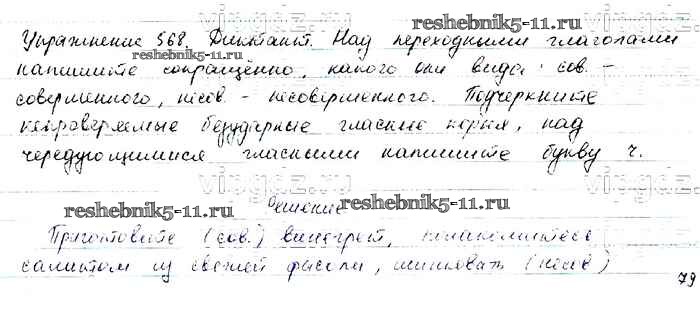 reshebnik5-11.ru
Упражнение 568. Диктант. Над переходными глаголами
reshebnik5-11.ru
напишите сокращённо, какого они вида: сов. -
совершенного, несов. - несовершенного. Подчеркните
непроверяемые безударные гласные корня, над
чередующимися гласными напишите букву ч.
vipgdz.ru
reshebnik5-11.ru Решение reshebnik5-11.ru
Приготовьте (сов.) винегрет,
салатом из свежей фасоли, шинковать (несов)
79